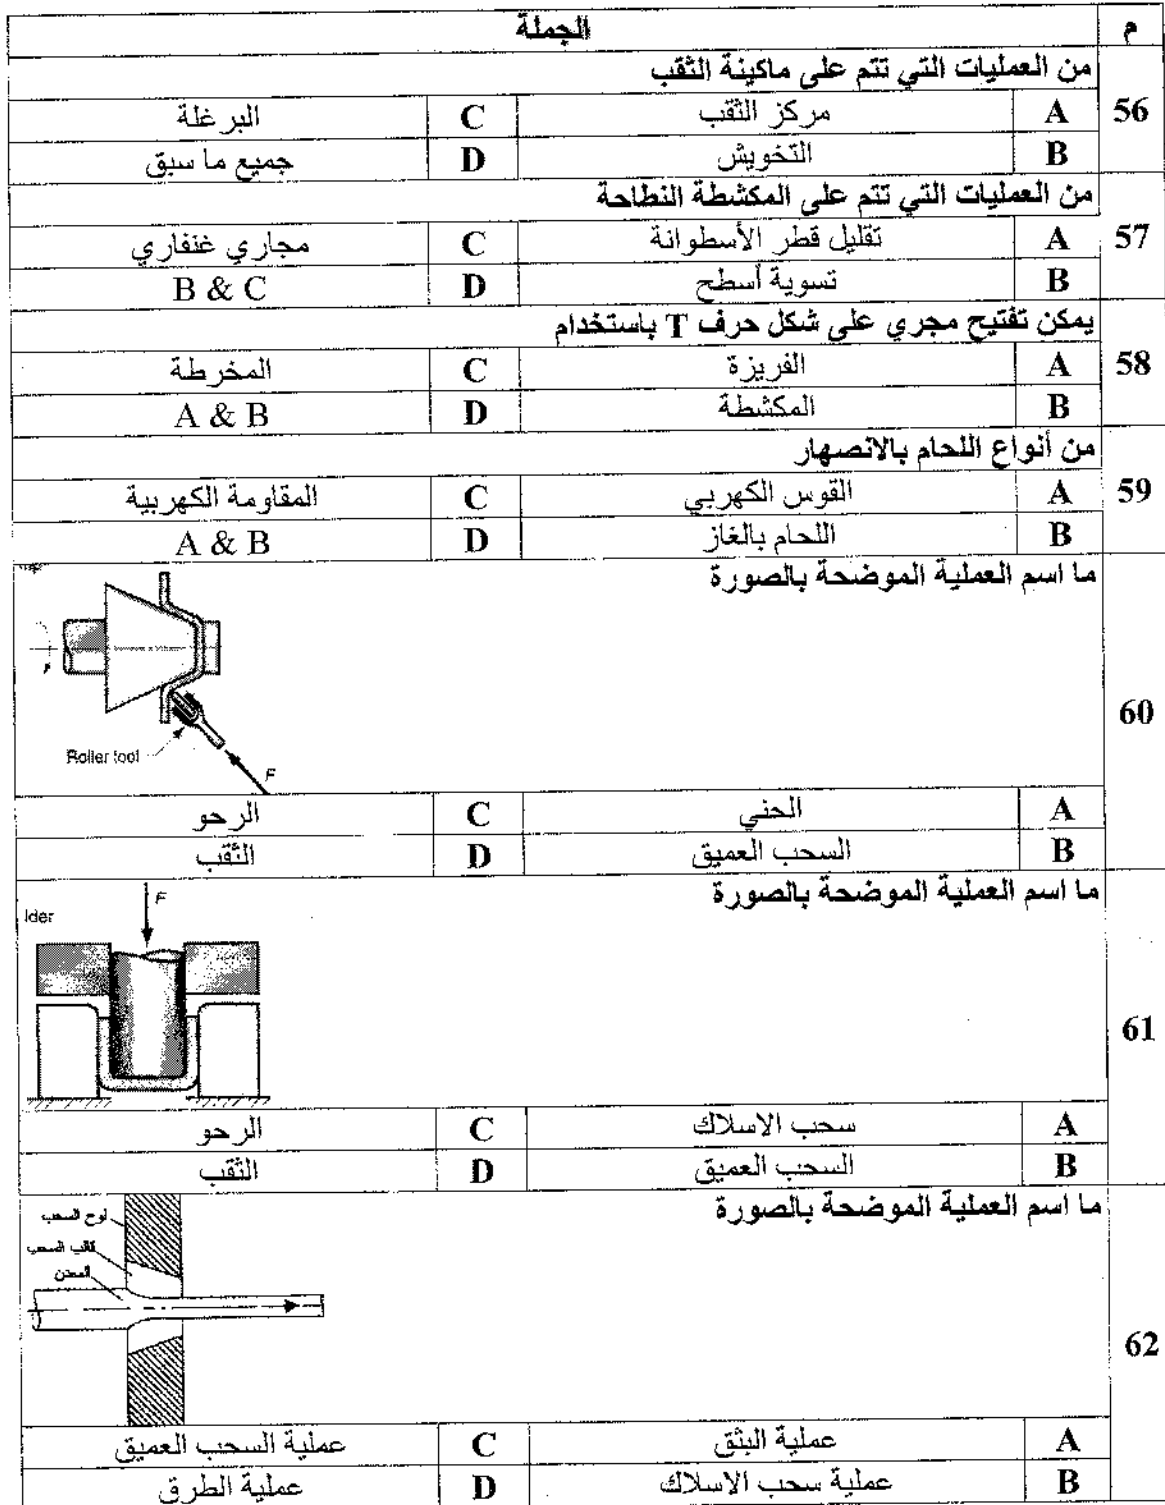 م الجملة
من العمليات التي تتم على ماكينة الثقب
56
A مركز الثقب C البرغلة
B التخويش D جميع ما سبق
من العمليات التي تتم على المكشطة النطاحة
57
A تقليل قطر الأسطوانة C مجاري غنفاري
B تسوية أسطح D B & C
يمكن تفتيح مجري على شكل حرف T باستخدام
58
A الفريزة C المخرطة
B المكشطة D A & B
من أنواع اللحام بالانصهار
59
A القوس الكهربي C المقاومة الكهربية
B اللحام بالغاز D A & B
ما اسم العملية الموضحة بالصورة
60
Roller tool
F
A الحني C الرحو
B السحب العميق D الثقب
ما اسم العملية الموضحة بالصورة
lder
F
61
A سحب الاسلاك C الرحو
B السحب العميق D الثقب
ما اسم العملية الموضحة بالصورة
لوح السحب
قالب السحب
المعدن
62
A عملية البثق C عملية السحب العميق
B عملية سحب الاسلاك D عملية الطرق